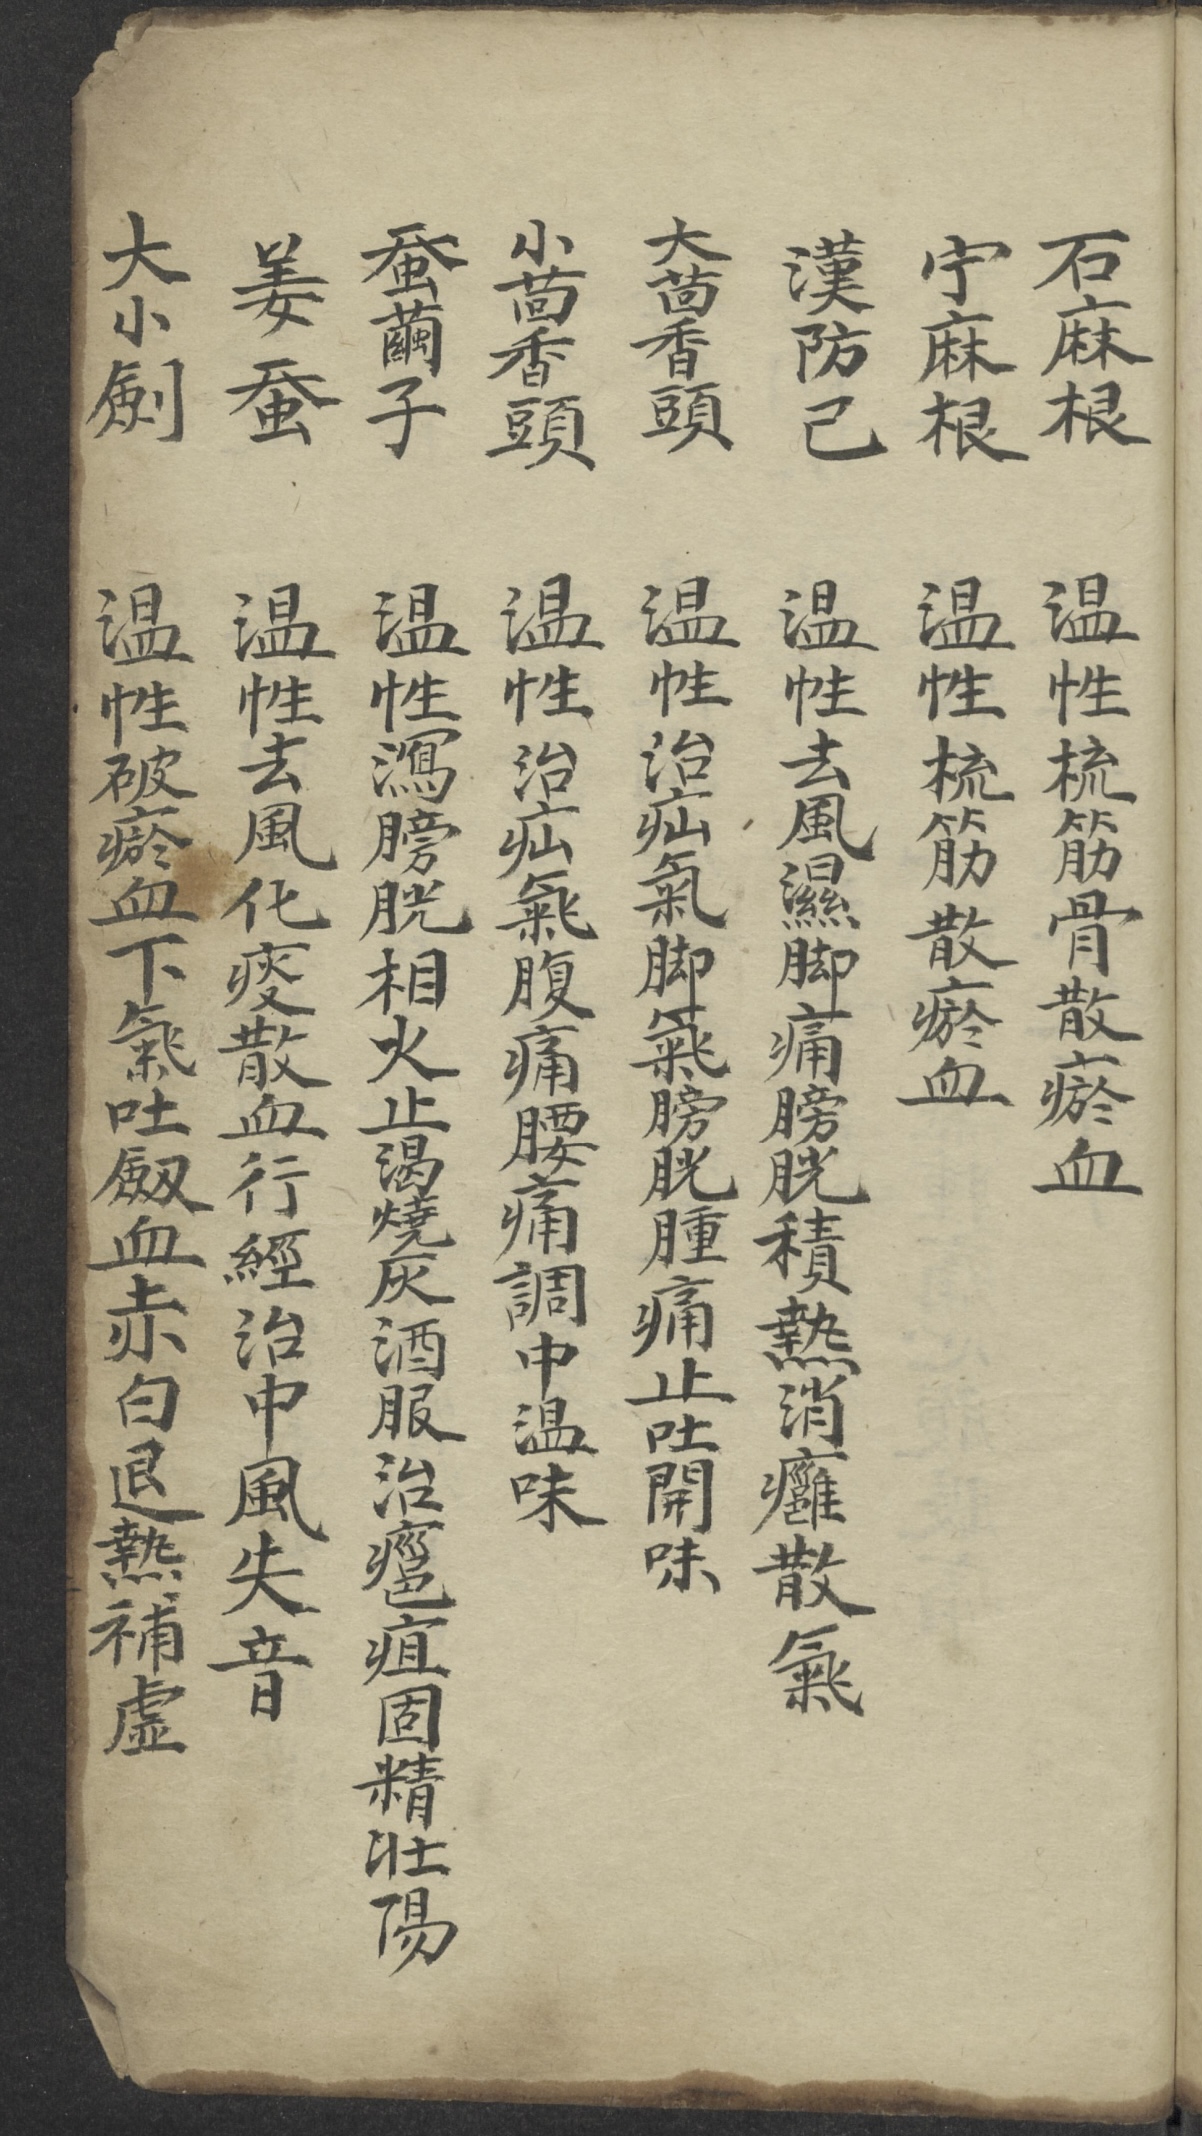 石麻根 温性梳筋骨散瘀血
宁麻根 温性梳筋散瘀血
漢防己 温性去風濕脚痛膀胱積熱消癰散氣
大茴香頭 温性治疝氣脚氣膀胱腫痛止吐開味
小茴香頭 温性治疝氣腹痛腰痛調中温味
蚕繭子 温性瀉膀胱相火止渴燒灰酒服治疽固精壯陽
姜蚕 温性去風化痰散血行經治中風失音
大小劍 温性破瘀血下氣吐血赤白退熱補虛